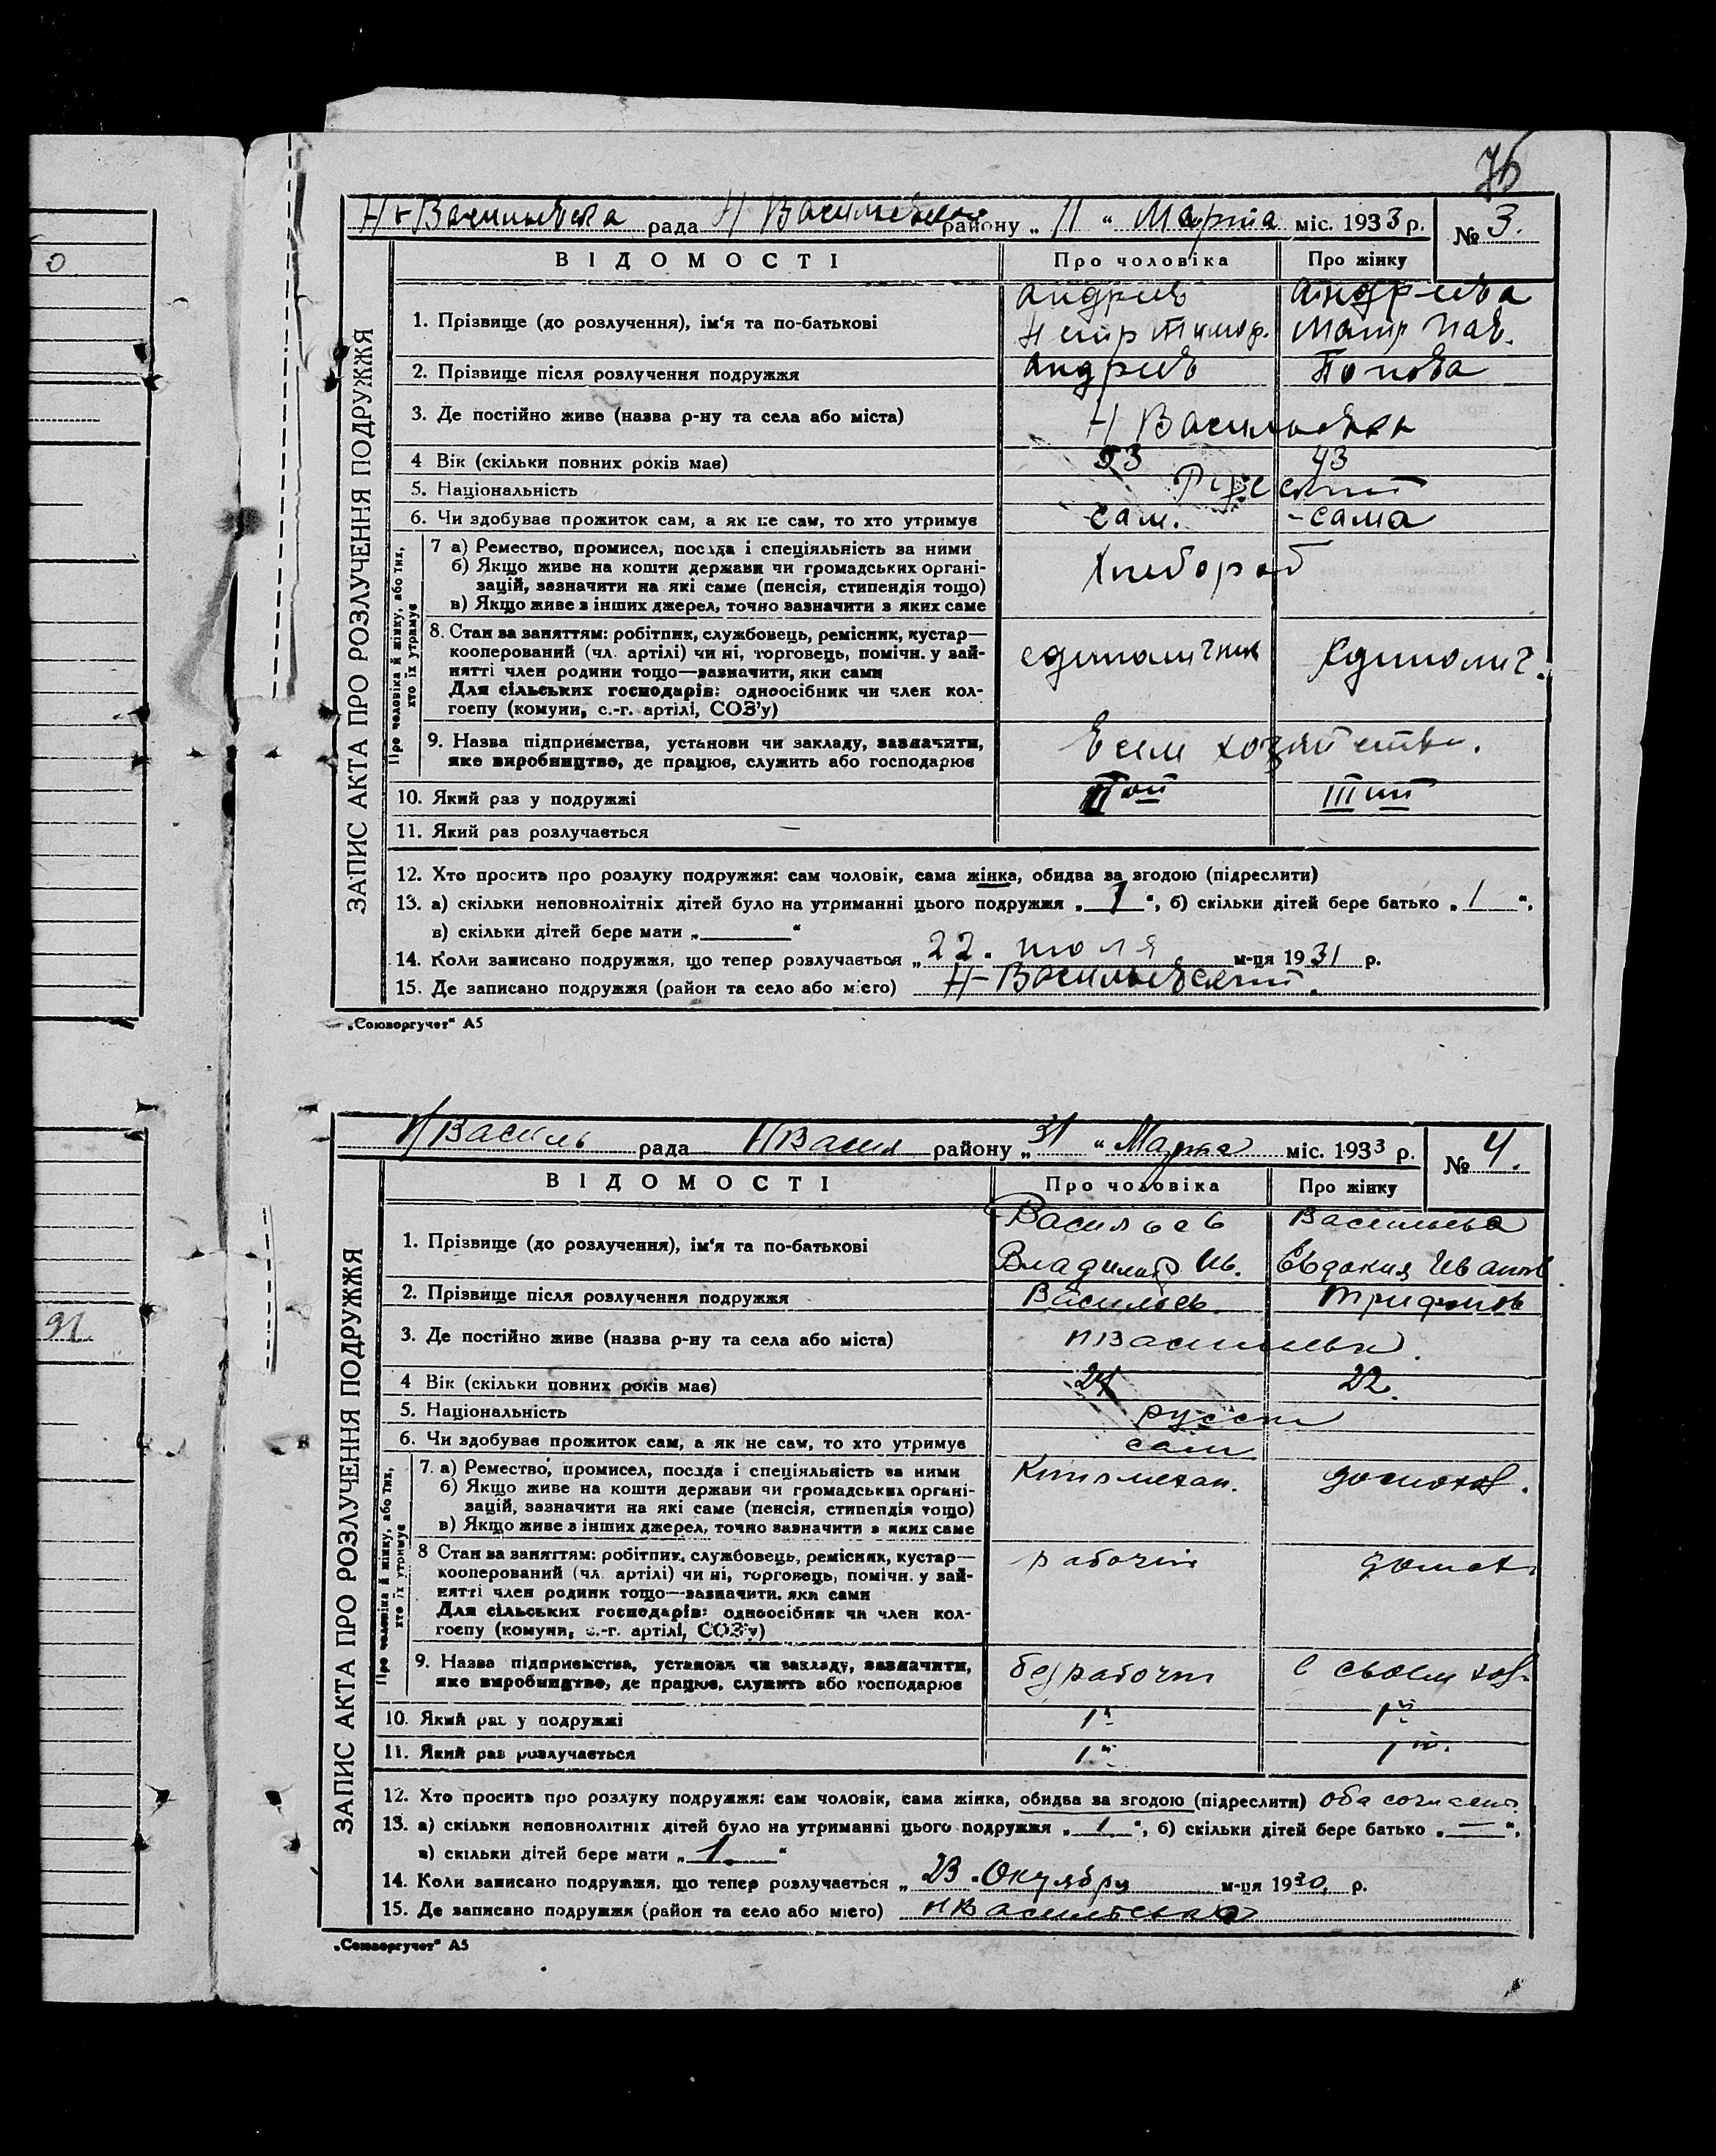 76
Н-Васильевка рада Н Васильевка району „ 11 “ Марта міс. 1933 р.
№ 3.
ВІДОМОСТІ Про чоловіка Про жінку
ЗАПИС АКТА ПРО РОЗЛУЧЕННЯ ПОДРУЖЖЯ
Андриев Андреева
1. Прізвище (до розлучення), ім‘я та по-батькові
Петр Тимоф. Матр Пав.
2. Прізвище після розлучення подружжя Андриев Попова
3. Де постійно живе (назва р-ну та села або міста) Н Васильевка
4 Вік (скільки повних років має) 53 43
5. Національність Русский
6. Чи здобуває прожиток сам, а як не сам, то хто утримує сам. - сама
Про чоловіка й жінку, або тих, хто їх утримує
7 а) Ремество, промисел, посада і спеціяльність за ними
б) Якщо живе на кошти держави чи громадських органі-
зацій, зазначити на які саме (пенсія, стипендія тощо)
в) Якщо живе з інших джерел, точно зазначити з яких саме
Хлебороб
8. Стан за заняттям: робітник, службовець, ремісник, кустар—
кооперований (чл. артілі) чи ні, торговець, помічн. у зай-
нятті член родини тощо—зазначити, яки сами
Для сільських господарів: одноосібник чи член кол-
госпу (комуни, с.-г. артілі, СОЗ’у)
единоличник Единолич.
9. Назва підприємства, установи чи закладу, зазначити,
яке виробництво, де працює, служить або господарює
хозяйстве.
10. Який раз у подружжі II ой III ий
11. Який раз розлучається
12. Хто просить про розлуку подружжя: сам чоловік, сама жінка, обидва за згодою (підреслити)
13. а) скільки неповнолітніх дітей було на утриманні цього подружжя „ 1 “, б) скільки дітей бере батько „ 1 “,
в) скільки дітей бере мати „ “
14. Коли записано подружжя, що тепер розлучається „ 22. июля м-ця 1931 р.
15. Де записано подружжя (район та село або місто) Н-Васильевский.
„Союзоргучет“ А5
Н Василь рада Н Васил району „ 31 “ Марта міс. 1933 р.
№ 4.
ВІДОМОСТІ Про чоловіка Про жінку
ЗАПИС АКТА ПРО РОЗЛУЧЕННЯ ПОДРУЖЖЯ
Васильев Васильева
1. Прізвище (до розлучення), ім‘я та по-батькові
Владимир Ив. Евдокия Иванов
2. Прізвище після розлучення подружжя Васильев. Трифонов
3. Де постійно живе (назва р-ну та села або міста) Н Васильевка.
4 Вік (скільки повних років має) 24 22.
5. Національність русски
6. Чи здобуває прожиток сам, а як не сам, то хто утримує сам
Про чоловіка й жінку, або тих, хто їх утримує
7. а) Ремество, промисел, посада і спеціяльність за ними
б) Якщо живе на кошти держави чи громадських органі-
зацій, зазначити на які саме (пенсія, стипендія тощо)
в) Якщо живе з інших джерел, точно зазначити з яких саме
Киномехан. домохоз.
8 Стан за заняттям: робітник, службовець, ремісник, кустар—
кооперований (чл. артілі) чи ні, торговець, помічн. у зай-
нятті член родини тощо—зазначити, яки сами
Для сільських господарів: одноосібник чи член кол-
госпу (комуни, с.-г. артілі, СОЗ’у)
рабочий домох.
9. Назва підприємства, установи чи закладу, зазначити,
яке виробництво, де працює, служить або господарює
безработн в своем хоз.
10. Який раз у подружжі 1й 1й
11. Який раз розлучається 1й 1й.
12. Хто просить про розлуку подружжя: сам чоловік, сама жінка, обидва за згодою (підреслити) оба согласн.
13. а) скільки неповнолітніх дітей було на утриманні цього подружжя „ 1 “, б) скільки дітей бере батько „ — “,
в) скільки дітей бере мати „ 1 “
14. Коли записано подружжя, що тепер розлучається „ 23. Октября м-ця 1930 р.
15. Де записано подружжя (район та село або місто) Н Васильевка
„Союзоргучет“ А5